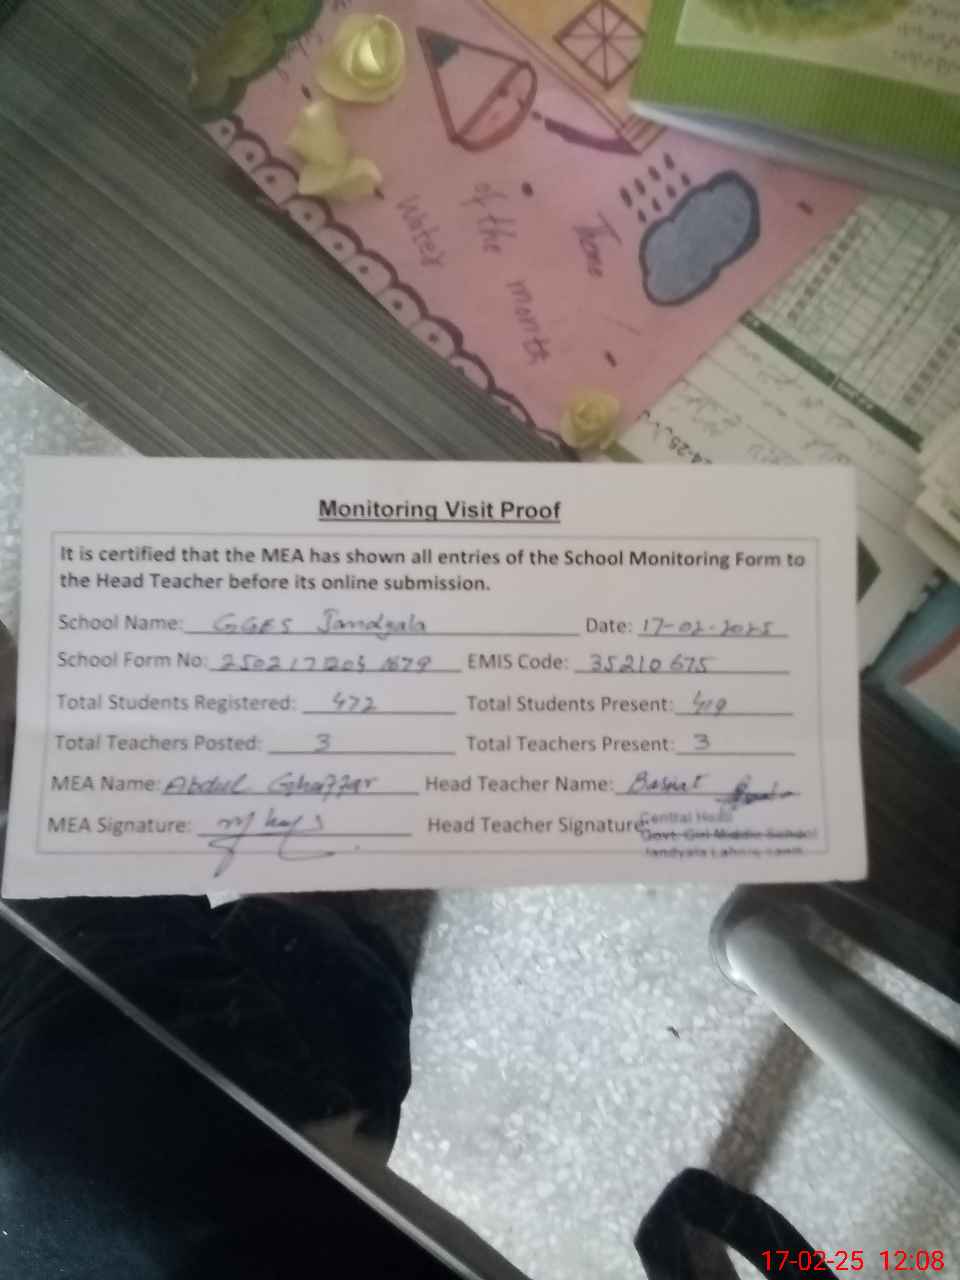 Theme
of the month
water
24-25
Monitoring Visit Proof
It is certified that the MEA has shown all entries of the School Monitoring Form to
the Head Teacher before its online submission.
School Name: GGES Jandyala Date: 17-02-2025
School Form No: EMIS Code: 35210675
Total Students Registered: 472 Total Students Present: 419
Total Teachers Posted: 3 Total Teachers Present: 3
MEA Name: Abdul Ghaffar Head Teacher Name:
MEA Signature: Head Teacher Signature:
Govt. Girl Middle School
Jandyala Lahore
17-02-25 12:08